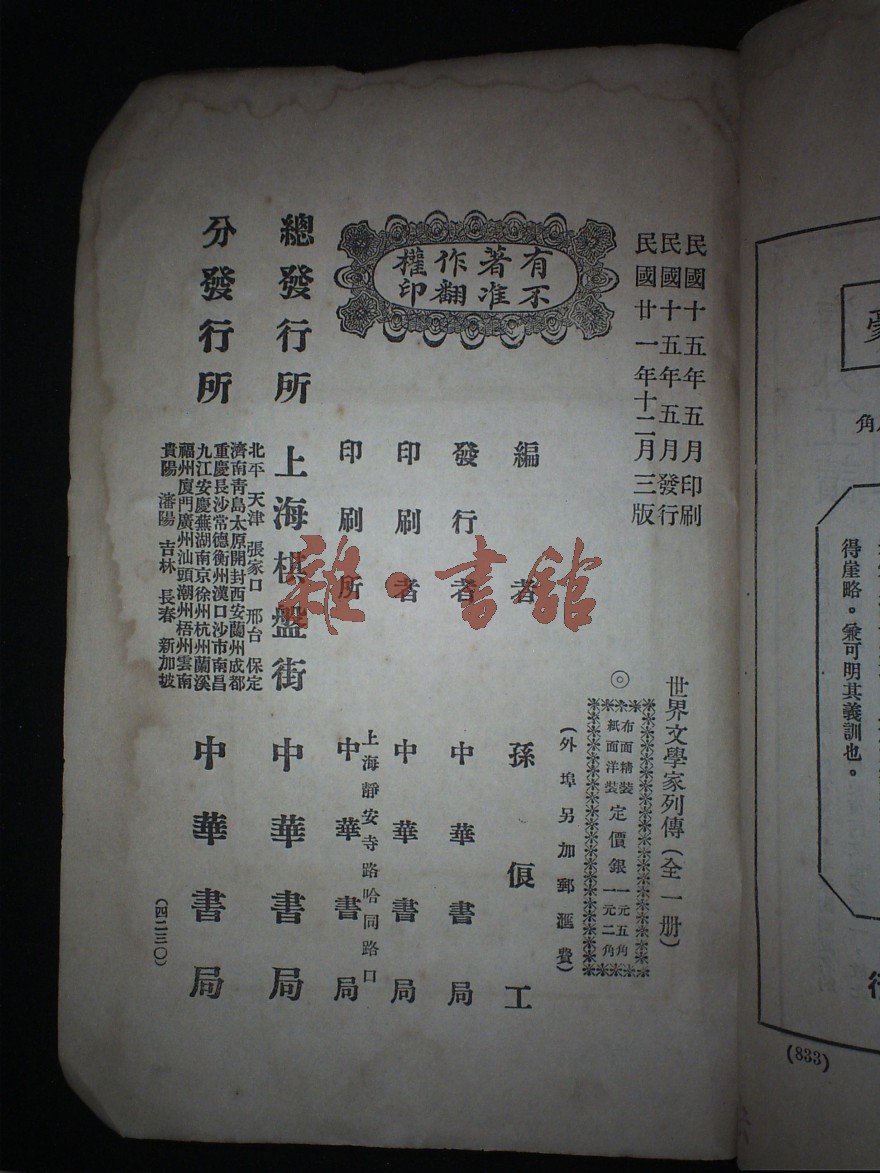 民國十五年五月印刷
民國十五年五月發行
民國廿一年十二月三版
有著作權
不准翻印
世界文學家列傳(全一册)
◎
布面精裝
紙面洋裝
定價銀
一元五角
一元二角
(外埠另加郵滙費)
編者 孫俍工
發行者 中華書局
印刷者 中華書局
上海靜安寺路哈同路口
印刷所 中華書局
總發行所 上海棋盤街 中華書局
分發行所
北平 天津 張家口 邢台 保定
濟南青島太原開封西安蘭州成都
重慶長沙常德衡州漢口沙市南昌
九江安慶蕪湖南京徐州杭州蘭溪
福州廈門廣州汕頭潮州梧州雲南
貴陽 瀋陽 吉林 長春 新加坡
中華書局
(四二三〇)
雜·書館
角
得崖略。兼可明其義訓也。
(833)